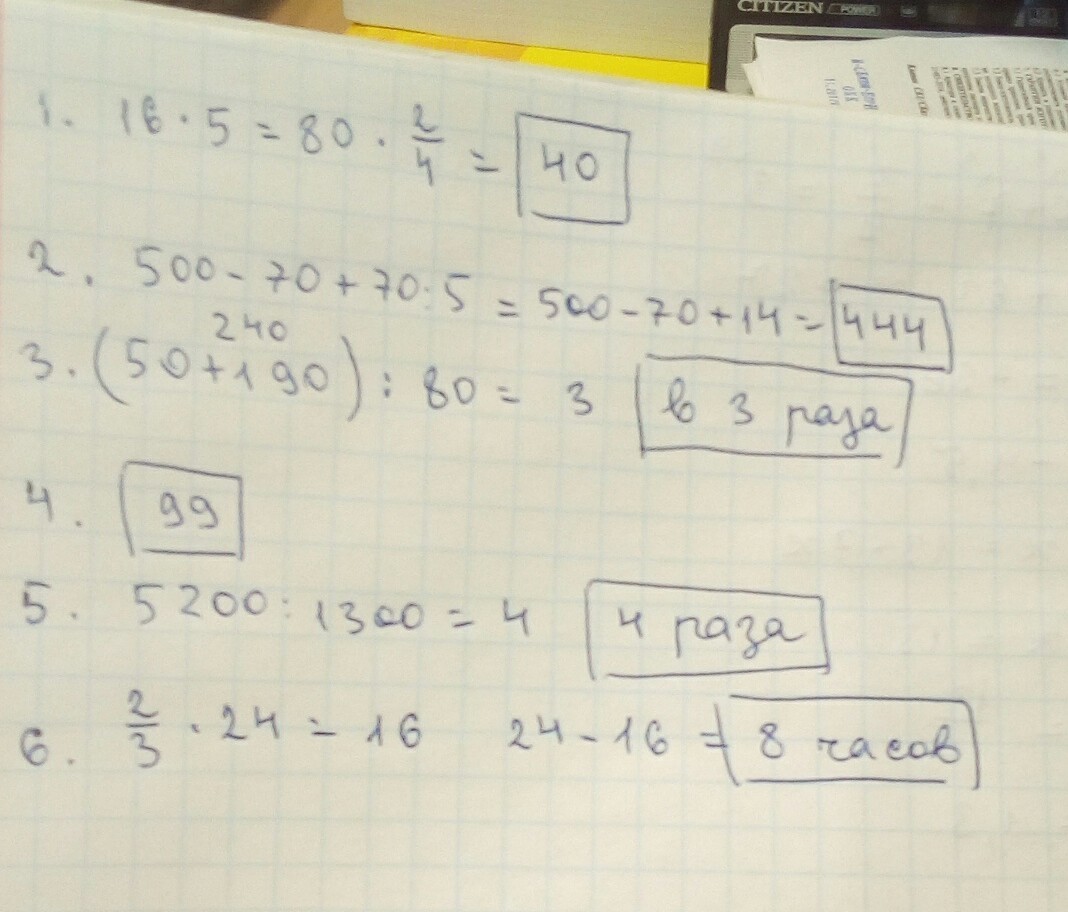 CITIZEN POWER
1. 16 · 5 = 80 · 2/4 = 40
2. 500 - 70 + 70 : 5 = 500 - 70 + 14 = 444
240
3. (50 + 190) : 80 = 3 в 3 раза
4. 99
5. 5200 : 1300 = 4 4 раза
6. 2/3 · 24 = 16 24 - 16 = 8 часов